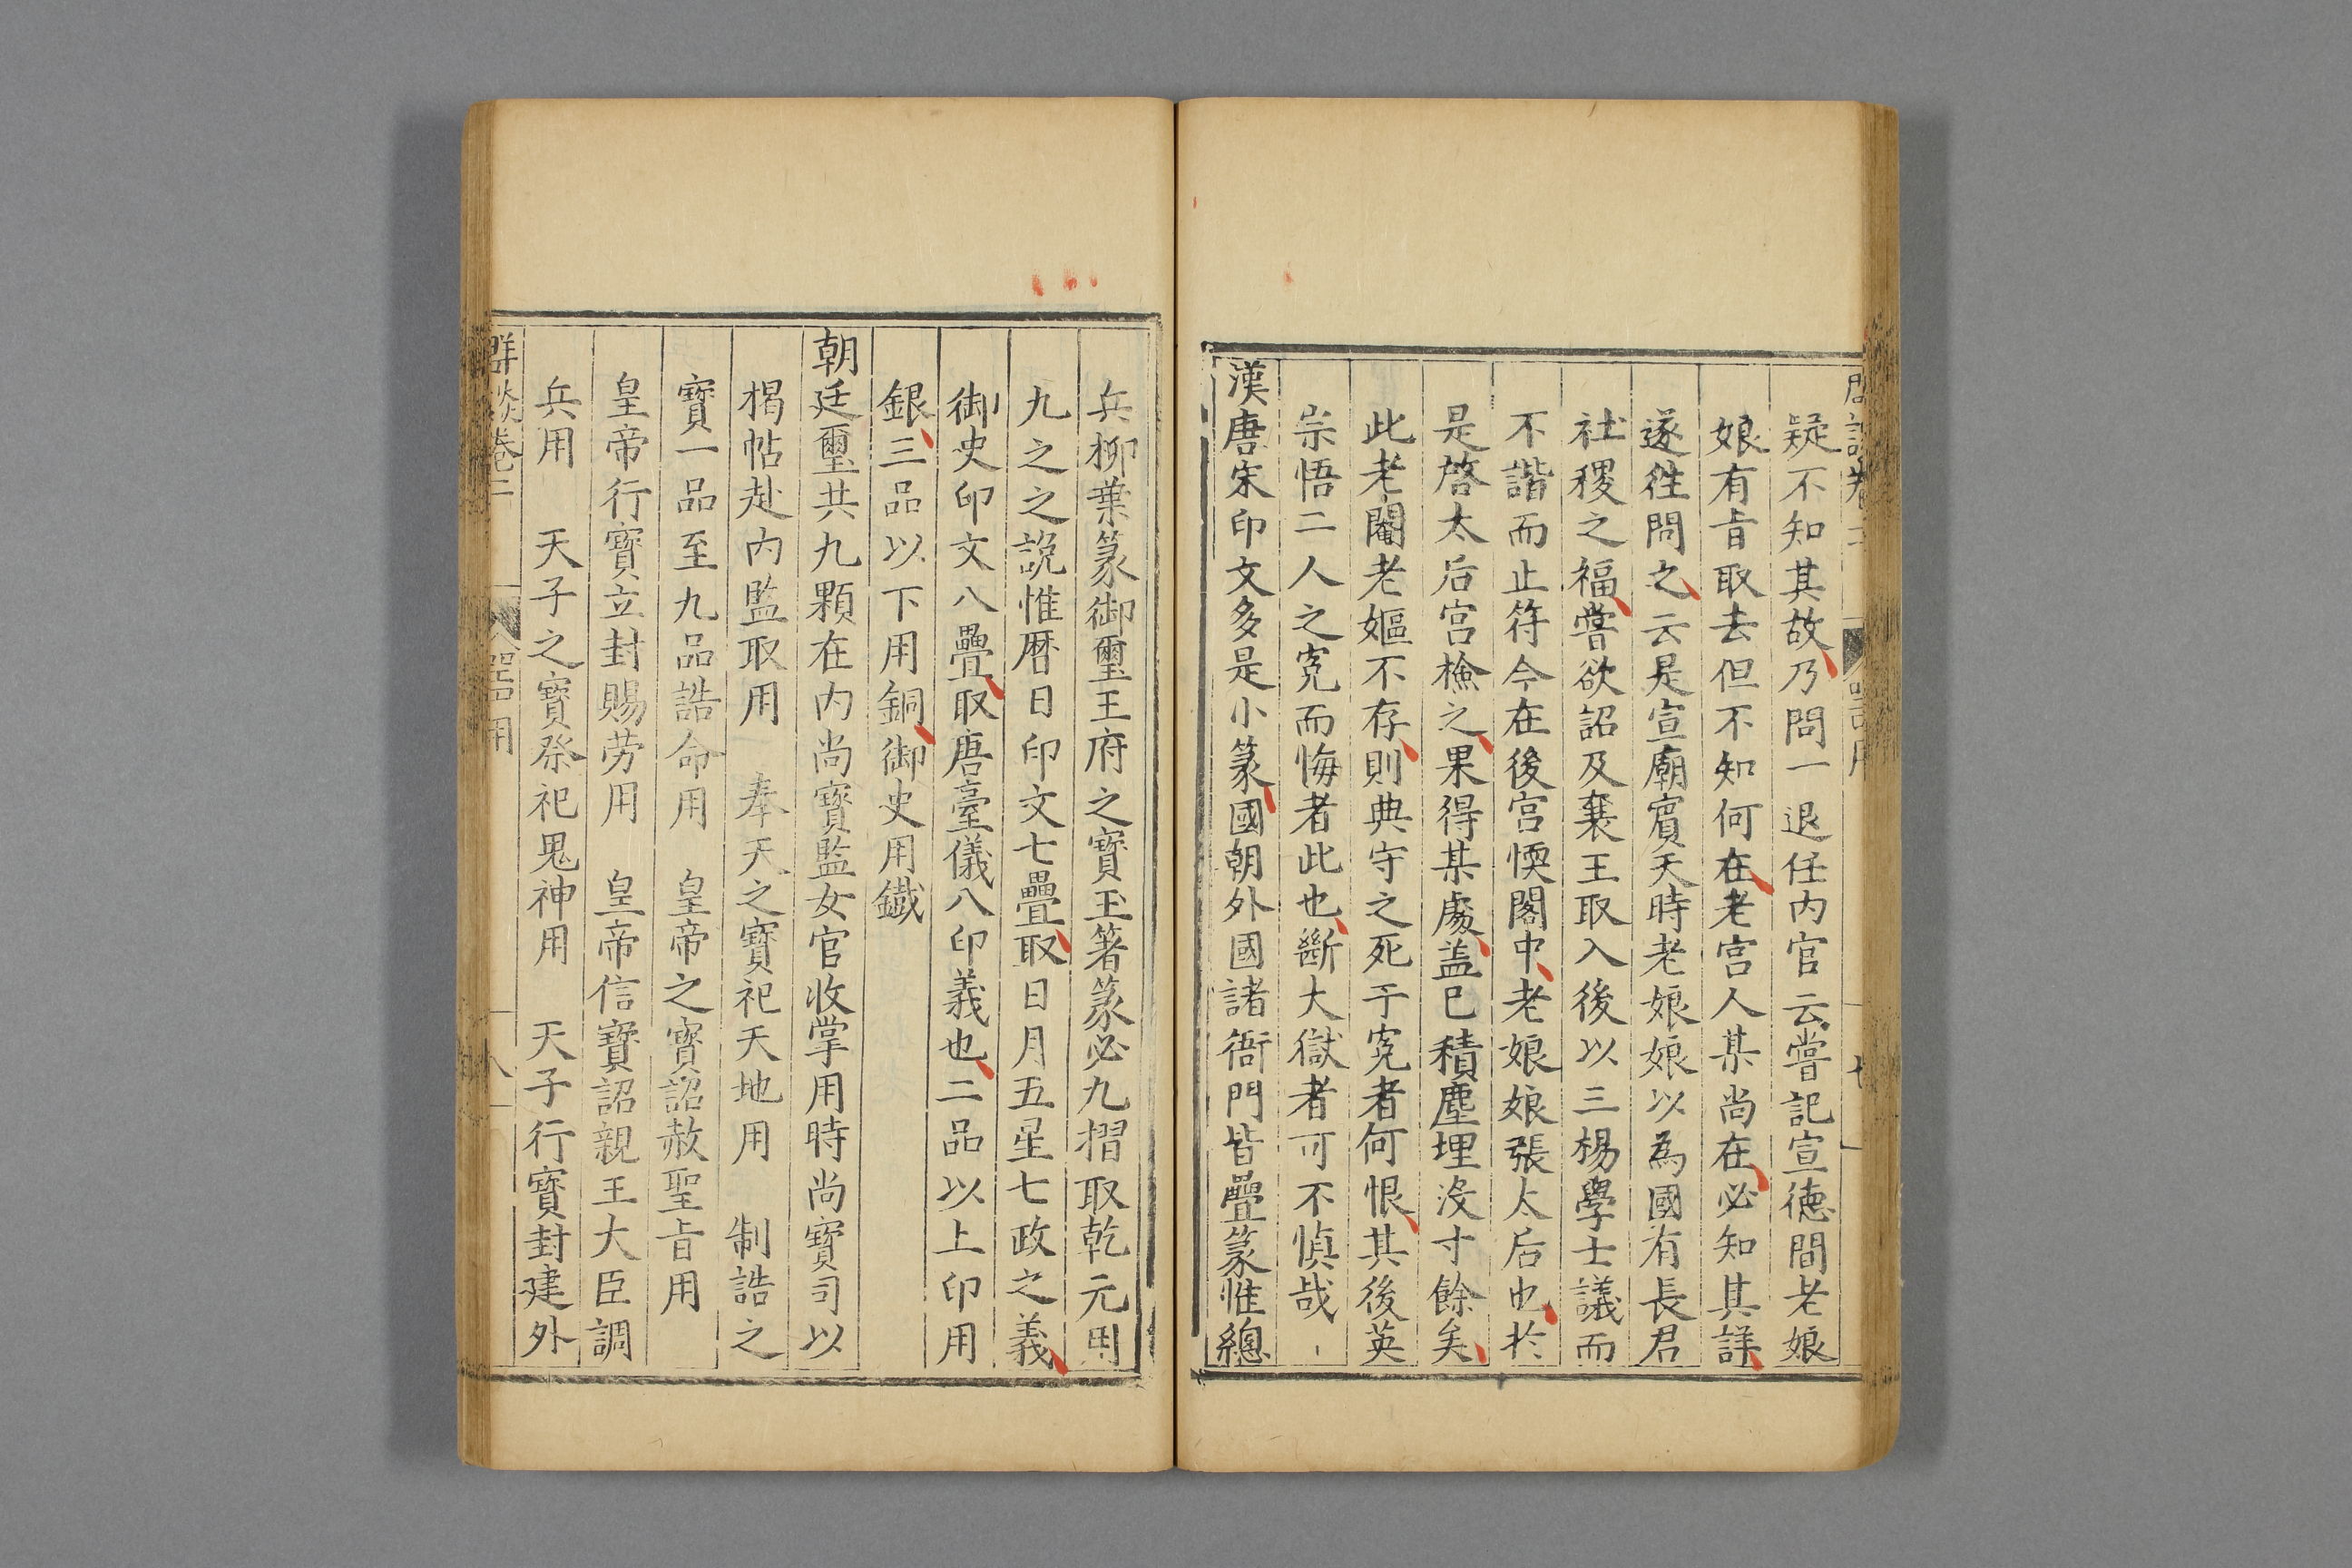 疑不知其故乃問一退任内官云嘗記宣德間老娘
娘有㫖取去但不知何在老宮人某尚在必知其詳
遂徃問之云是宣廟賔天時老娘娘以為國有長君
社稷之福嘗欲詔及襄王取入後以三楊學士議而
不諧而止符今在後宮㬉閣中老娘娘張太后也於
是啓太后宮檢之果得某處盖已積塵埋沒寸餘矣
此老閹老嫗不存則典守之死于寃者何恨其後英
宗悟二人之寃而悔者此也斷大獄者可不慎哉
漢唐宋印文多是小篆國朝外國諸衙門皆疊篆惟總
兵柳葉篆御璽王府之寳玉箸篆必九摺取乾元用
九之之説惟曆日印文七疊取日月五星七政之義
御史印文八疊取唐臺儀八印義也二品以上印用
銀三品以下用銅御史用鐵
朝廷璽共九顆在内尚寳監女官收掌用時尚寳司以
揭帖赴内監取用　奉天之寳祀天地用　制誥之
寳一品至九品誥命用　皇帝之寳詔赦聖㫖用
皇帝行寳立封賜劳用　皇帝信寳詔親王大臣調
兵用　天子之寳祭祀鬼神用　天子行寳封建外
群談卷二　器用　八